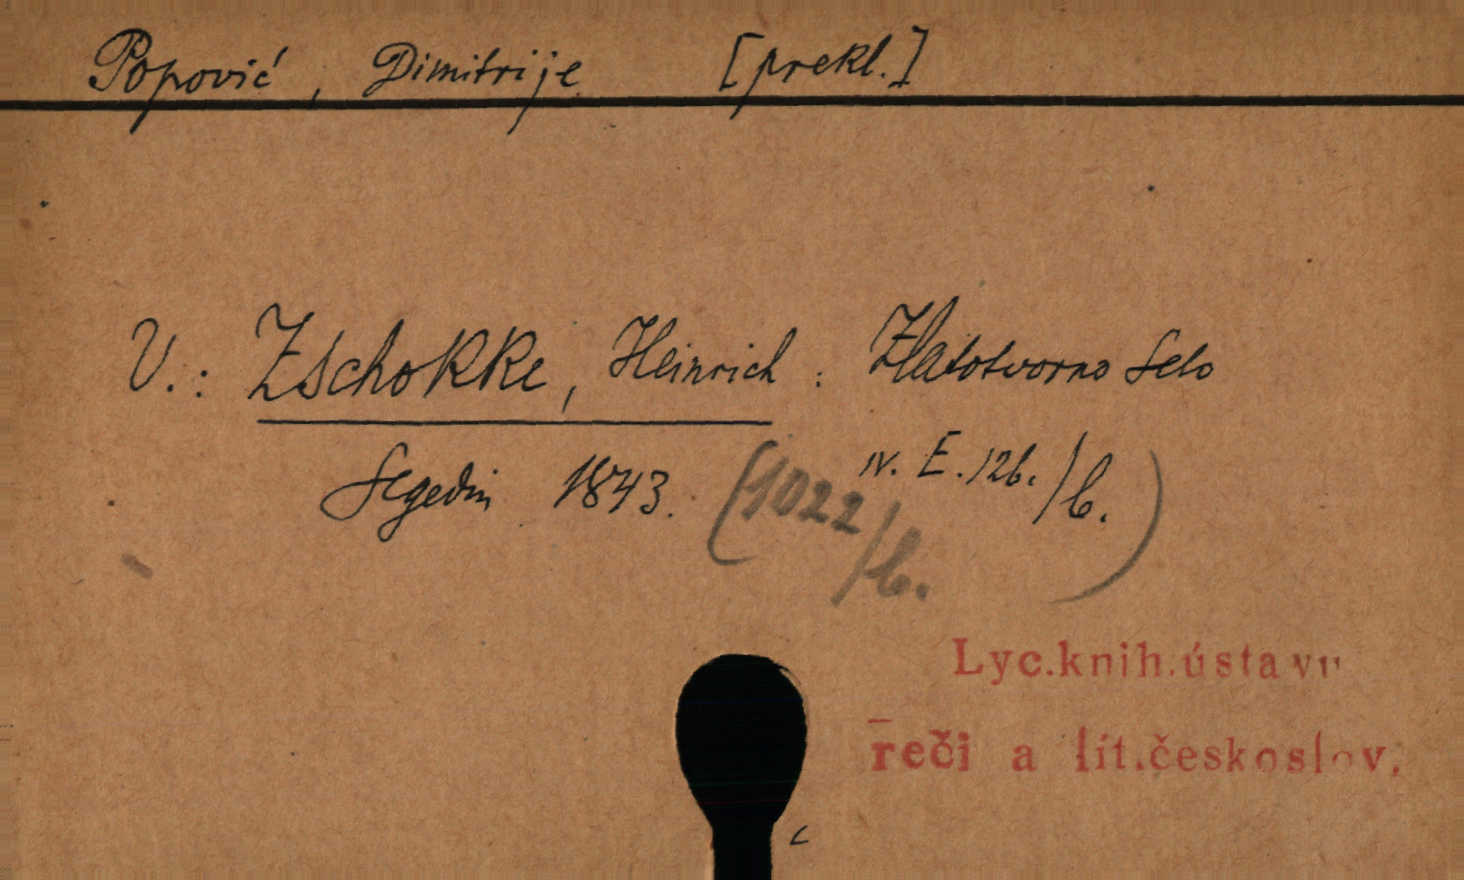 Popović, Dimitrije [prekl.]
V.: Zschokke, Heinrich: Zlatotvorno Selo
Segedin 1843. (1022/b. IV. E. 12b./b.)
Lyc.knih.ústavu
reči a lit.českoslov.